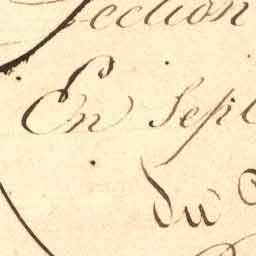 Section
En Sept
du